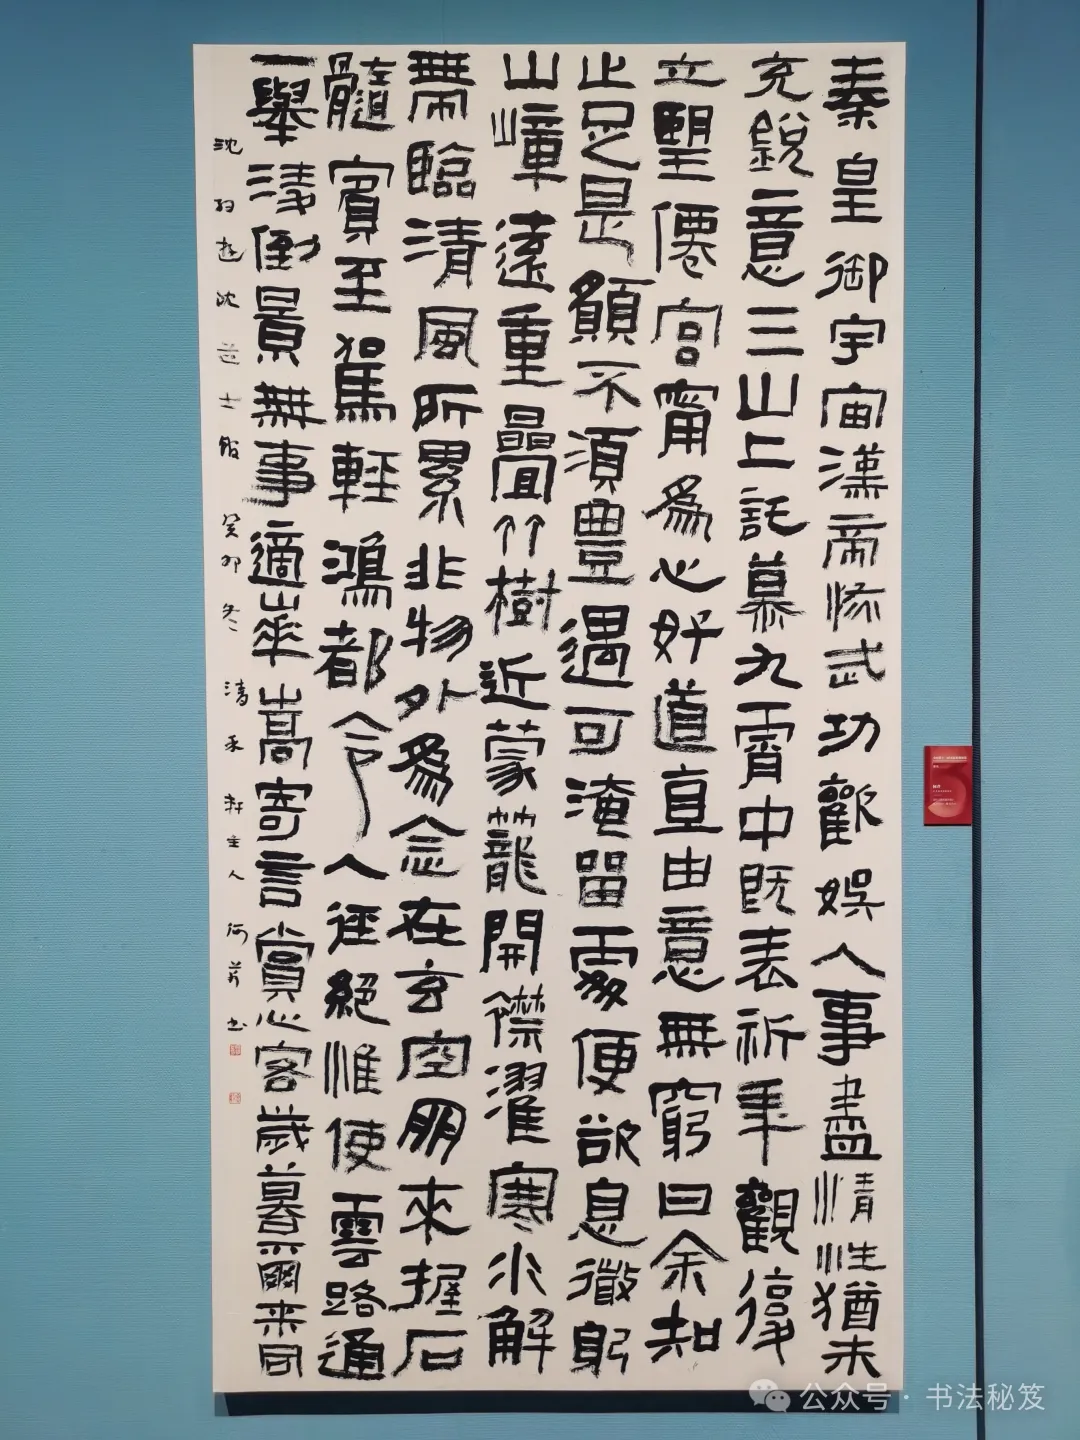 秦皇御宇宙漢帝恢武功歡娛人事盡情性猶未
充銳意三山上託慕九霄中既表祈年觀復
立朢僊宮甯爲心好道直由意無窮曰余知
止足是願不須豐遇可淹留處便欲息微躬
山嶂遠重疊竹樹近蒙籠開襟濯寒水解
帶臨清風所累非物外爲念在玄空朋來握石
髓賓至駕輕鴻都令人徑絕惟使雲路通
一舉淩倒景無事適崋嵩寄言賞心客歲暮爾来同
沈約遊沈道士館 癸卯冬 清禾軒主人 何 書
公众号·书法秘笈